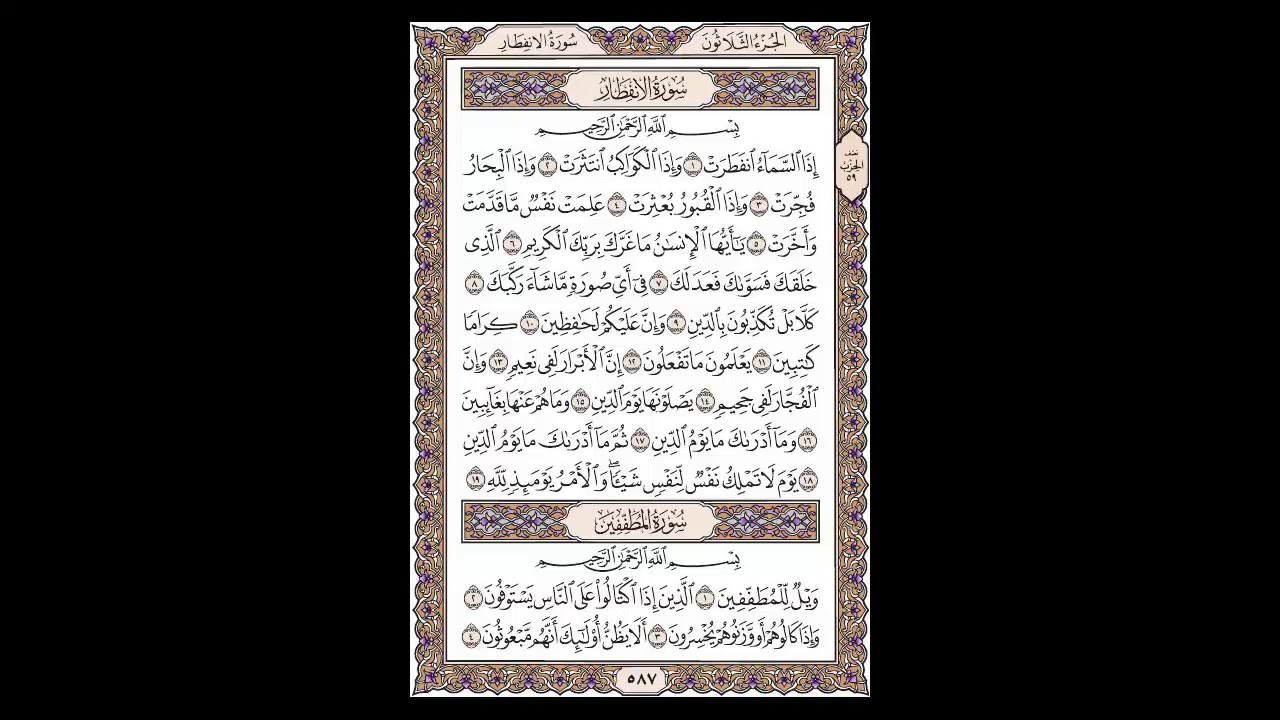 الجُزْءُ الثَّلَاثُونَ
سُورَةُ الانفِطَارِ
سُورَةُ الانفِطَارِ
بِسْمِ ٱللَّهِ ٱلرَّحْمَٰنِ ٱلرَّحِيمِ
إِذَا ٱلسَّمَآءُ ٱنفَطَرَتْ ١ وَإِذَا ٱلْكَوَاكِبُ ٱنتَثَرَتْ ٢ وَإِذَا ٱلْبِحَارُ
فُجِّرَتْ ٣ وَإِذَا ٱلْقُبُورُ بُعْثِرَتْ ٤ عَلِمَتْ نَفْسٌ مَّا قَدَّمَتْ
وَأَخَّرَتْ ٥ يَٰٓأَيُّهَا ٱلْإِنسَٰنُ مَا غَرَّكَ بِرَبِّكَ ٱلْكَرِيمِ ٦ ٱلَّذِى
خَلَقَكَ فَسَوَّىٰكَ فَعَدَلَكَ ٧ فِىٓ أَىِّ صُورَةٍ مَّا شَآءَ رَكَّبَكَ ٨
كَلَّا بَلْ تُكَذِّبُونَ بِٱلدِّينِ ٩ وَإِنَّ عَلَيْكُمْ لَحَٰفِظِينَ ١٠ كِرَامًا
كَٰتِبِينَ ١١ يَعْلَمُونَ مَا تَفْعَلُونَ ١٢ إِنَّ ٱلْأَبْرَارَ لَفِى نَعِيمٍ ١٣ وَإِنَّ
ٱلْفُجَّارَ لَفِى جَحِيمٍ ١٤ يَصْلَوْنَهَا يَوْمَ ٱلدِّينِ ١٥ وَمَا هُمْ عَنْهَا بِغَآئِبِينَ
١٦ وَمَآ أَدْرَىٰكَ مَا يَوْمُ ٱلدِّينِ ١٧ ثُمَّ مَآ أَدْرَىٰكَ مَا يَوْمُ ٱلدِّينِ
١٨ يَوْمَ لَا تَمْلِكُ نَفْسٌ لِّنَفْسٍ شَيْـًٔا ۖ وَٱلْأَمْرُ يَوْمَئِذٍ لِّلَّهِ ١٩
نصف
الحِزْب
٥٩
سُورَةُ المُطَفِّفِينَ
بِسْمِ ٱللَّهِ ٱلرَّحْمَٰنِ ٱلرَّحِيمِ
وَيْلٌ لِّلْمُطَفِّفِينَ ١ ٱلَّذِينَ إِذَا ٱكْتَالُوا۟ عَلَى ٱلنَّاسِ يَسْتَوْفُونَ ٢
وَإِذَا كَالُوهُمْ أَو وَّزَنُوهُمْ يُخْسِرُونَ ٣ أَلَا يَظُنُّ أُو۟لَٰٓئِكَ أَنَّهُم مَّبْعُوثُونَ ٤
٥٨٧